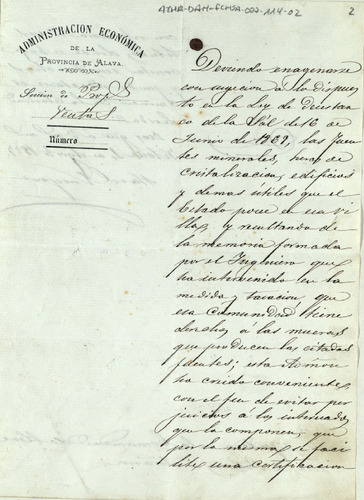 ATHA-DAH-FCHSA-007-114-02
2
ADMINISTRACION ECONÓMICA
DE LA
PROVINCIA DE ALAVA.
Seccion de Prop.s
Ventas
Número
Deviendo enagenarse
con sugecion á lo dispues
to en la Ley de desestan
co de la Sal de 16 de
Junio de 1869, las fuen
tes minerales, heras de
cristalizacion, edificios
y demas útiles que el
Estado posee en esa Vi
lla, y resultando de
la memoria formada
por el Ingeniero que
ha intervenido en la
medida y tasacion, que
esa Comunidad tiene
derecho a las mueras
que producen las citadas
fuentes; esta Admon
ha creido conveniente,
con el fin de evitar per
juicios a los interesados
que la componen, que
por la misma se faci
lite una certificacion